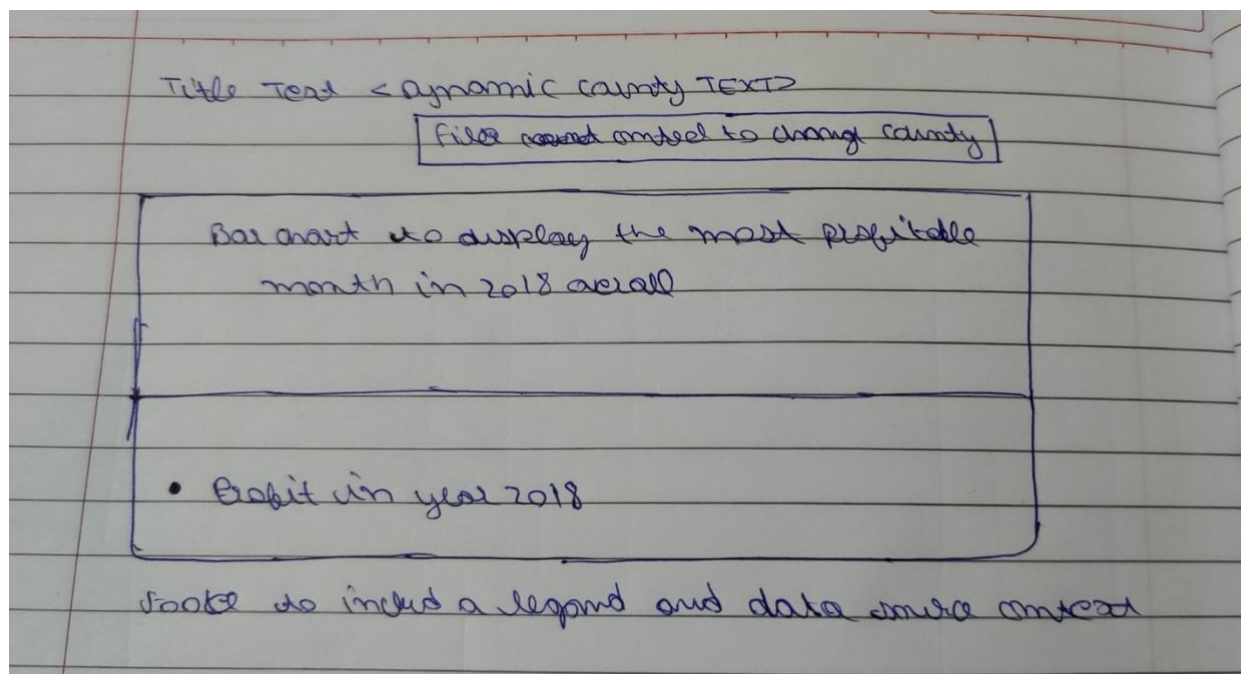 Title Text < Dynamic county TEXT>
Filter control to change county
Bar chart to display the most profitable
month in 2018 overall
• Profit in year 2018
Footer to includ a legand and data source context